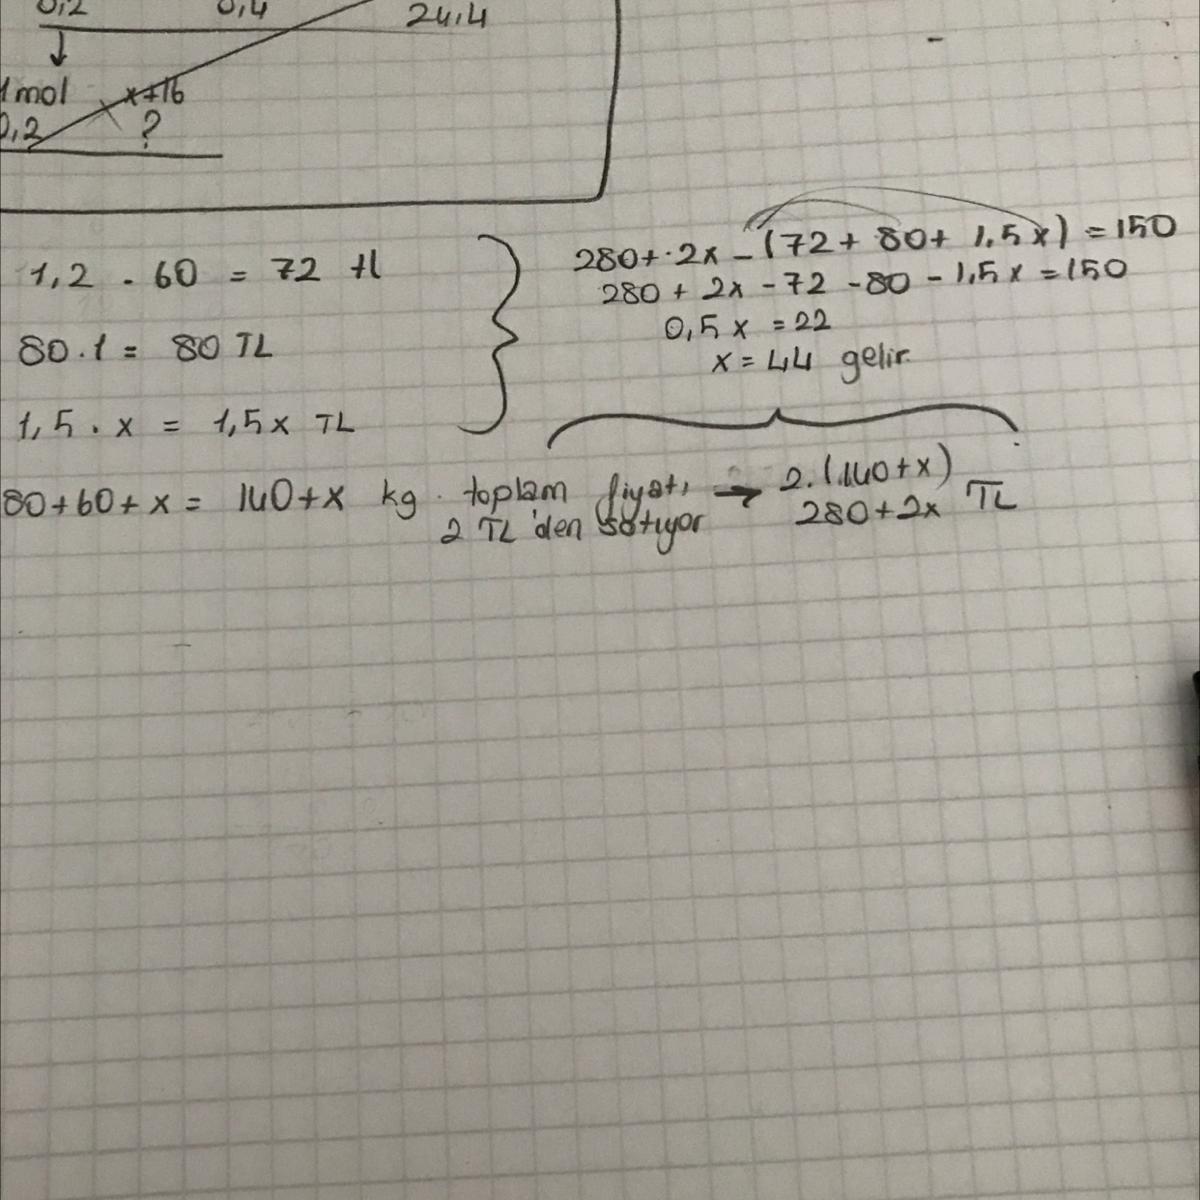 0,2 0,4 24,4
1 mol x+16
0,2 ?
1,2 . 60 = 72 tl
80.1 = 80 TL
1,5 . x = 1,5x TL
280+.2x-(72+80+1,5x)=150
280+2x-72-80-1,5x=150
0,5x =22
x=44 gelir.
80+60+x= 140+x kg. toplam fiyatı → 2.(140+x)
2 TL'den satıyor 280+2x TL